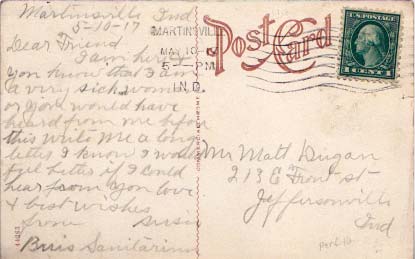 Martinsville Ind
5-10-17
Dear Friend
I am here
you know that I am
a very sick woman
or you would have
heard from me before
this write me a long
letter I know I would
feel better if I could
hear from you love
& best wishes
from Susie
Sanitarium
44263
COMMERCIALCHROME
MARTINSVILLE
MAY 10
5 - PM
IND.
Post Card
U.S. POSTAGE
1 CENT 1
Mr Matt Dugan
213 E Front st
Jeffersonville
Ind